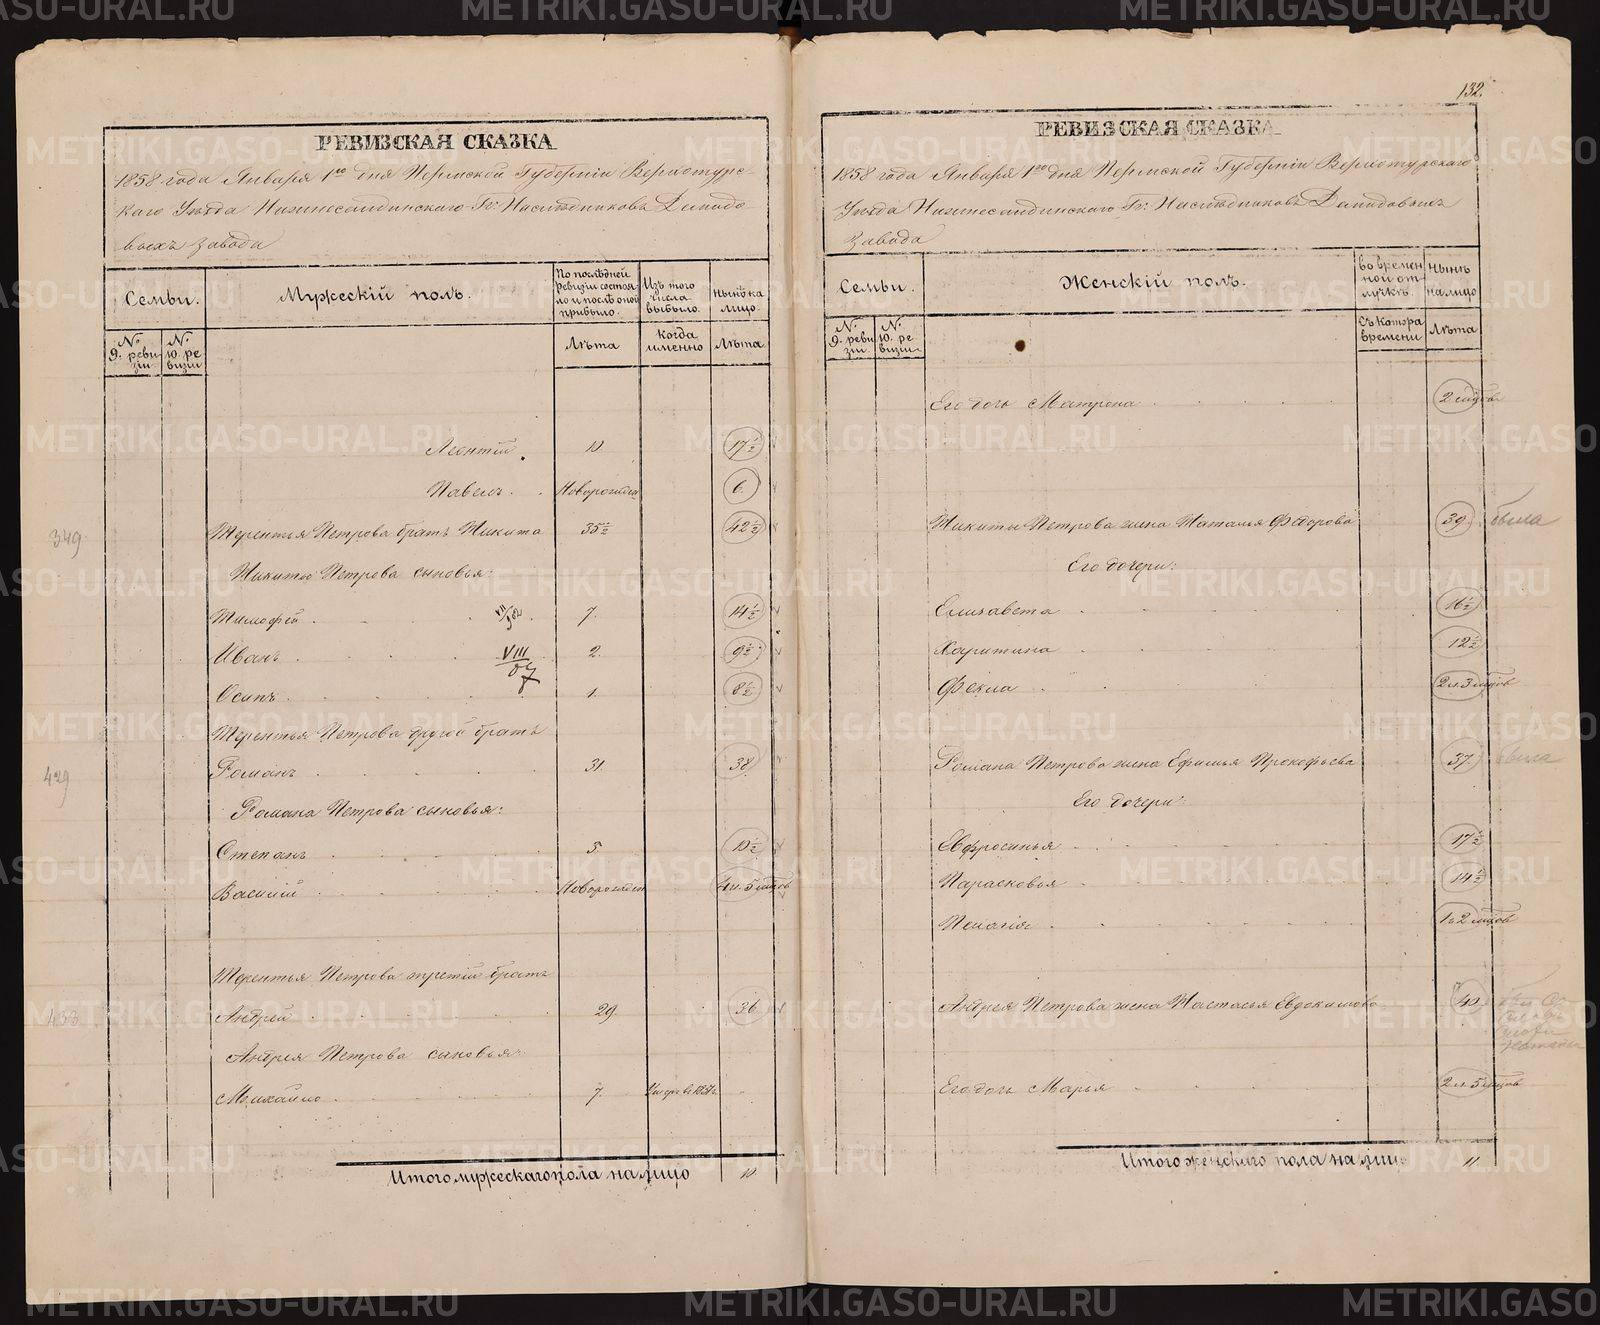 РЕВИЗСКАЯ СКАЗКА
1858 года Января 1го дня Пермской Губерніи Верхотурс-
каго Уѣзда Нижнесалдинскаго Гг: Наслѣдниковъ Демидо
выхъ завода
Семьи.
Мужескій полъ.
По послѣдней ревизіи состояло и послѣ оной прибыло.
Изъ того числа выбыло.
Нынѣ на лицо.
№ 9. ревизіи
№ 10. ревизіи
Лѣта
Когда именно
Лѣта
Леонтій. 10 17½
Павелъ. Новорожден 6.
349
Терентья Петрова братъ Никита 35½ 42½
Никиты Петрова сыновья:
Тимофей 7. 14½
Иванъ VIII 2. 9½
Осипъ 1. 8½
Терентья Петрова другой братъ
429
Романъ 31. 38
Романа Петрова сыновья:
Степанъ 5. 10½
Василій Новорожден 4 л. 5 мцов
Терентья Петрова третій братъ
433
Андрей 29. 36.
Андрея Петрова сыновья:
Михайло 7. Умеръ въ
Итого мужескаго пола на лицо 10
132.
РЕВИЗСКАЯ СКАЗКА
1858 года Января 1го дня Пермской Губерніи Верхотурскаго
Уѣзда Нижнесалдинскаго Гг: Наслѣдниковъ Демидовыхъ
Завода
Семьи.
Женскій полъ.
Во временной отлучкѣ.
Нынѣ на лицо
№ 9. ревизіи
№ 10. ревизіи
Съ котора времени
Лѣта
Его дочь Матрона 2 мцов
Никиты Петрова жена Наталья Федорова 39. была
Его дочери:
Елизавета 16½
Харитина 12½
Фекла 2 л. 3 мцов
Романа Петрова жена Ефимья Прокофьева 37. была
Его дочери:
Евфросинья 17½
Парасковья 14½
Пелагія 1 2 мцов
Андрея Петрова жена Настасья Евдокимова 40.
Его дочь Марья 2 л. 5 мцов
Итого женскаго пола на лицо 11.
METRIKI.GASO-URAL.RU